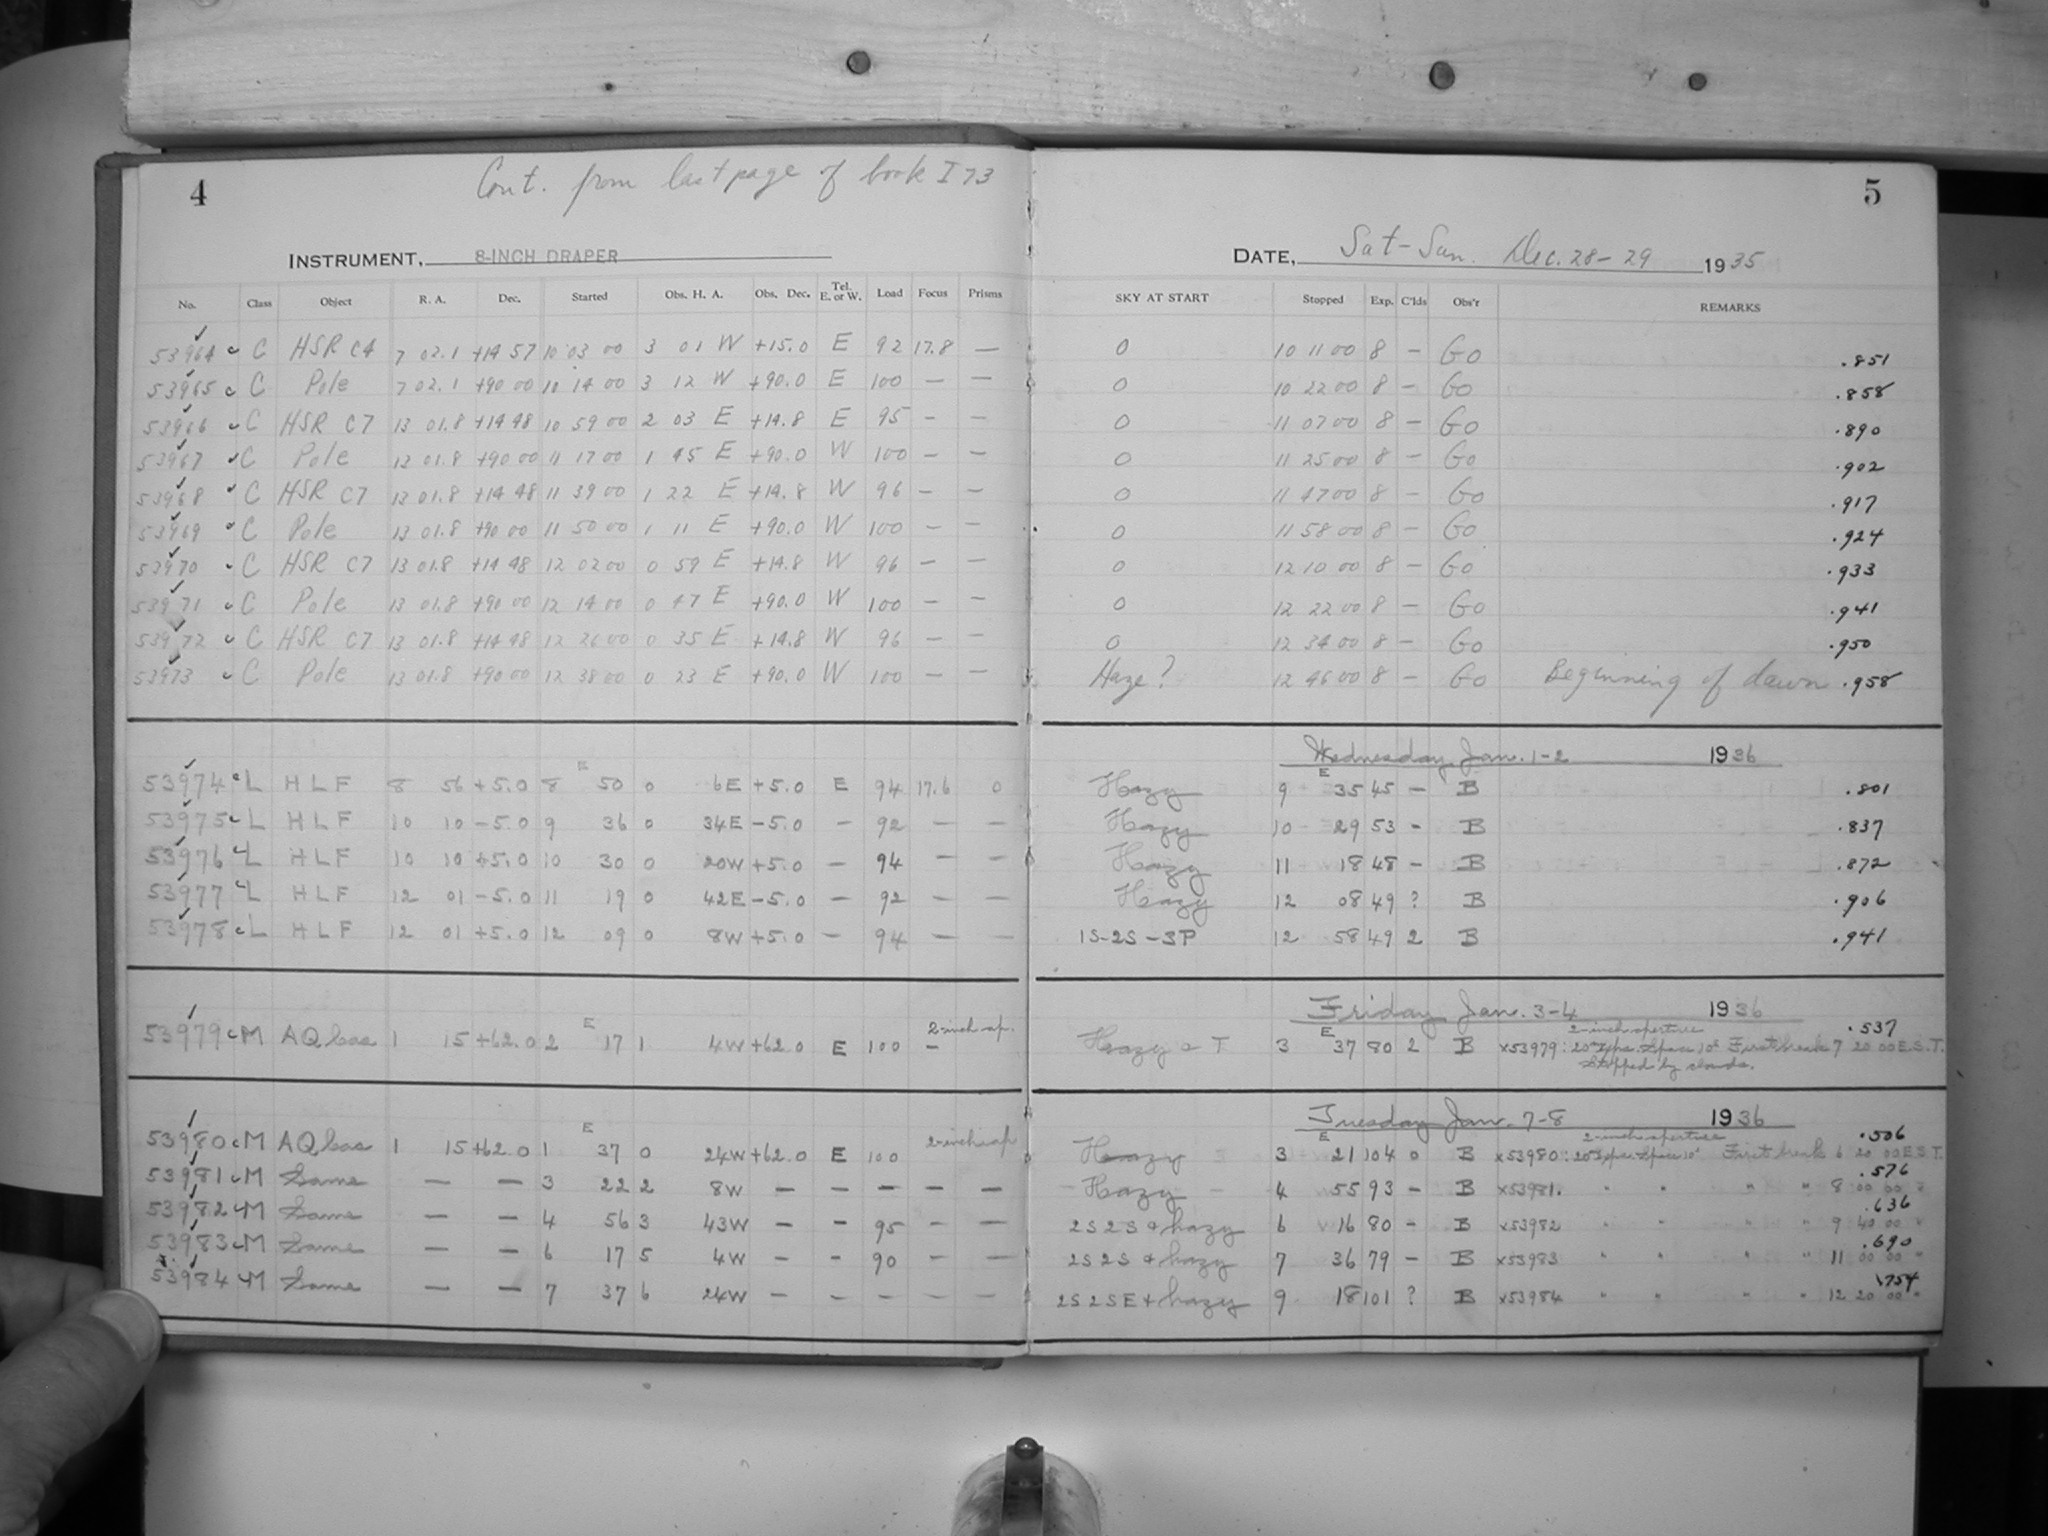 4
Cont. from last page of book I 73
INSTRUMENT, 8-INCH DRAPER
No. Class Object R. A. Dec. Started Obs. H. A. Obs. Dec. Tel. E. or W. Load Focus Prisms
53964 C HSR C4 7 02.1 +14 57 10 03 00 3 01 W +15.0 E 92 17.8 —
53965 C Pole 7 02.1 +90 00 10 14 00 3 12 W +90.0 E 100 — —
53966 C HSR C7 13 01.8 +14 48 10 59 00 2 03 E +14.8 E 95 — —
53967 C Pole 13 01.8 +90 00 11 17 00 1 45 E +90.0 W 100 — —
53968 C HSR C7 13 01.8 +14 48 11 39 00 1 22 E +14.8 W 96 — —
53969 C Pole 13 01.8 +90 00 11 50 00 1 11 E +90.0 W 100 — —
53970 C HSR C7 13 01.8 +14 48 12 02 00 0 59 E +14.8 W 96 — —
53971 C Pole 13 01.8 +90 00 12 14 00 0 47 E +90.0 W 100 — —
53972 C HSR C7 13 01.8 +14 48 12 26 00 0 35 E +14.8 W 96 — —
53973 C Pole 13 01.8 +90 00 12 38 00 0 23 E +90.0 W 100 — —
53974 L H L F 8 56 +5.0 8 E 50 0 6E +5.0 E 94 17.6 0
53975 L H L F 10 10 -5.0 9 36 0 34E -5.0 — 92 — —
53976 L H L F 10 10 +5.0 10 30 0 20W +5.0 — 94 — —
53977 L H L F 12 01 -5.0 11 19 0 42E -5.0 — 92 — —
53978 L H L F 12 01 +5.0 12 09 0 8W +5.0 — 94 — —
53979 M AQ Cas 1 15 +62.0 2 E 17 1 4W +62.0 E 100 — 2-inch ap.
53980 M AQ Cas 1 15 +62.0 1 E 37 0 24W +62.0 E 100 2-inch ap
53981 M Same — — 3 22 2 8W — — — — —
53982 M Same — — 4 56 3 43W — — 95 — —
53983 M Same — — 6 17 5 4W — — 90 — —
53984 M Same — — 7 37 6 24W — — — — —
5
DATE, Sat-Sun. Dec. 28-29 1935
SKY AT START Stopped Exp. C'lds Obs'r REMARKS
0 10 11 00 8 — Go .851
0 10 22 00 8 — Go .858
0 11 07 00 8 — Go .890
0 11 25 00 8 — Go .902
0 11 47 00 8 — Go .917
0 11 58 00 8 — Go .924
0 12 10 00 8 — Go .933
0 12 22 00 8 — Go .941
0 12 34 00 8 — Go .950
Haze? 12 46 00 8 — Go Beginning of dawn .958
Wednesday Jan. 1-2 1936
Hazy 9 E 35 45 — B .801
Hazy 10 29 53 - B .837
Hazy 11 18 48 — B .872
Hazy 12 08 49 ? B .906
1S-2S-3P 12 58 49 2 B .941
Friday Jan. 3-4 1936
2-inch aperture .537
Hazy T 3 E 37 80 2 B x53979: Space 10s First break 7 20 00 E.S.T.
Stopped by clouds.
Tuesday Jan. 7-8 1936
2-inch aperture .506
Hazy 3 E 21 104 0 B x53980: Space 10s First break 6 20 00 E.S.T.
.576
Hazy 4 55 93 — B x53981. " " " " 8 00 00 "
.636
2S 2S & hazy 6 16 80 — B x53982 " " " " 9 40 00 "
.690
2S 2S & hazy 7 36 79 — B x53983 " " " " 11 00 00 "
.754
2S 2S E & hazy 9 18 101 ? B x53984 " " " " 12 20 00 "